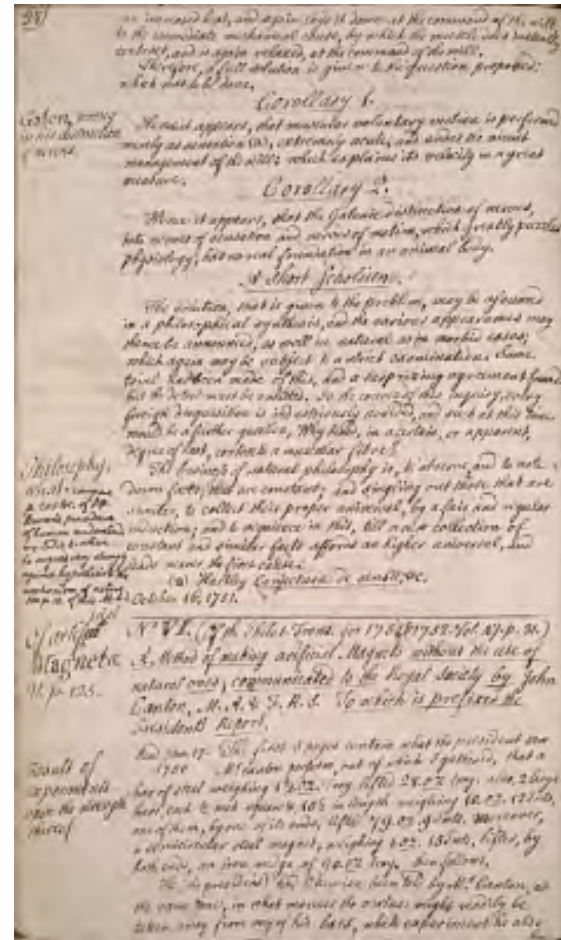 98
an increased heat, and again cools it down at the command of the will,
to the immediate mechanical cause, by which the muscle is instantly
contract, and is again relaxed, at the command of the will.
Therefore, a full solution is given to the question proposed;
which was to be done.
Corollary 1.
Galen, wrong
in his distinction
of nerves.
Hence it appears, that muscular voluntary motion is performed
merely as sensation (a), extremely acute, and under the
management of the will; which explains its velocity in a great
measure.
Corollary 2.
Hence it appears, that the Galenic distinction of nerves,
into nerves of sensation and nerves of motion, which greatly puzzles
physiology, has no real foundation in an animal body.
A Short Scholium.
The solution, that is given to the problem, may be assumed
in a philosophical synthesis, and the various appearances may
thence be announced, as well in natural as in morbid cases;
which again may be subject to a strict examination. Some
trial has been made of this, and a surprizing agreement found
but the detail must be omitted. In the course of this inquiry, every
foreign disquisition is industriously avoided, and such at this time
would be a further question, Why heat, in a certain, or apparent,
degree of heat, contracts a muscular fibre?
Philosophy,
what.
The business of natural philosophy is, to observe, and to note
down facts, that are constant; and singling out those that are
similar, to collect their proper universal, by a fair and regular
induction; and to acquiesce in this, till a new collection of
constant and similar facts affords an higher universal, and
leads nearer the first cause.
(a) Hartley Conjecturae de &c.
October 16, 1751.
Of artificial
Magnets
p. 125.
No. VI. (Of the Philos. Trans. for 1751 & 1752. Vol. 47. p. 31.)
A Method of making artificial Magnets without the use of
natural ones, communicated to the Royal Society by John
Canton, M. A. & F. R. S. To which is prefixed the
President's Report.
Read Jan. 17. The first 3 pages contain what the president saw
1750 Mr. Canton perform, out of which I gathered, that a
Result of
experiments
upon the strength
thereof
bar of steel weighing oz. troy lifted 28 oz. troy. also, 2 large
bars, each ½ inch square & 10½ in length weighing 10 oz. 12 dwts,
one of them, by one of its ends, lifted 79 oz. 9 dwts. Moreover,
a semicircular steel magnet, weighing 1 oz. 13 dwts, lifted, by
both ends, an iron wedge of 90 oz. troy.
He (the president) had likewise been told by Mr. Canton, at
the same time, in what manner the virtue might readily be
taken away from any of his bars, which experiment he also